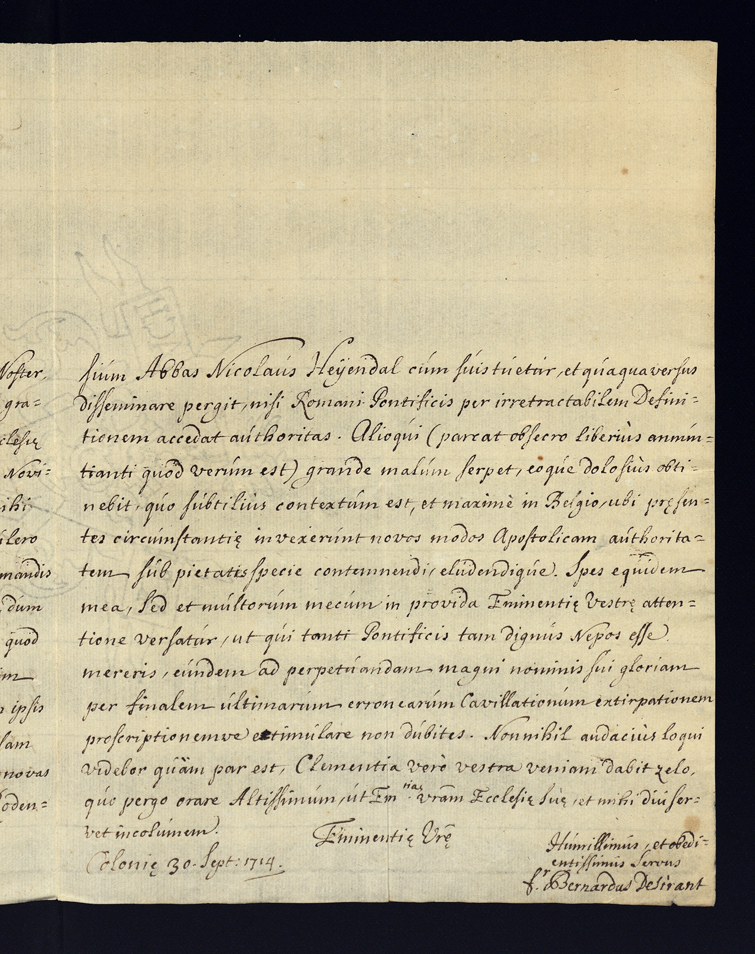 Noster,
gra=
clesię
Novi=
ihi
ulero
mandis
dum
quod
im
ipsis
sam
novas
oden=
sium Abbas Nicolaus Heÿendal cum suis tuetur, et quaquaversus
disseminare pergit, nisi Romani Pontificis per irretractabilem Defini-
tionem accedat authoritas. Alioqui (parcat obsecro liberius annun=
tianti quod verum est) grande malum serpet, eoque dolosius obti-
nebit, quo subtilius contextum est, et maximè in Belgio, ubi pręsen-
tes circumstantię invexerunt novos modos Apostolicam authorita=
tem sub pietatis specie contemnendi, eludendique. Spes equidem
mea, sed et multorum mecum in provida Eminentię Vestrę atten-
tione versatur, ut qui tanti Pontificis tam dignus Nepos esse
mereris, eundem ad perpetuandam magni nominis sui gloriam
per finalem ultimarum erronearum Cavillationum extirpationem
proscriptionemve extimulare non dubites. Nonnihil audacius loqui
videbor quàm par est, Clementia verò vestra veniam dabit zelo,
quo pergo orare Altissimum, ut Em.nias vram Ecclesię Suę, et mihi diu ser-
vet incolumem.
Eminentię Vrę
Colonię 30. Sept: 1714.
Humillimus, et obedi-
entissimus Servus
f.r Bernardus Desirant